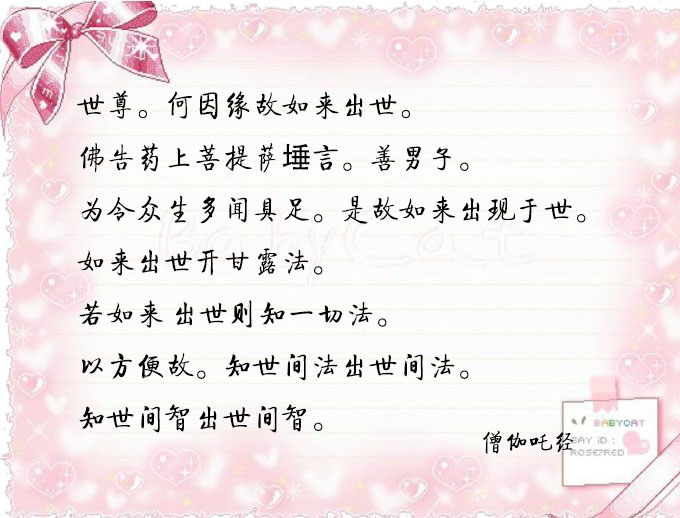 世尊。何因缘故如来出世。
佛告药上菩提萨埵言。善男子。
为令众生多闻具足。是故如来出现于世。
BabyCat
如来出世开甘露法。
若如来 出世则知一切法。
以方便故。知世间法出世间法。
知世间智出世间智。
僧伽吒经
BABYCAT
BAY iD :
ROSE7RED